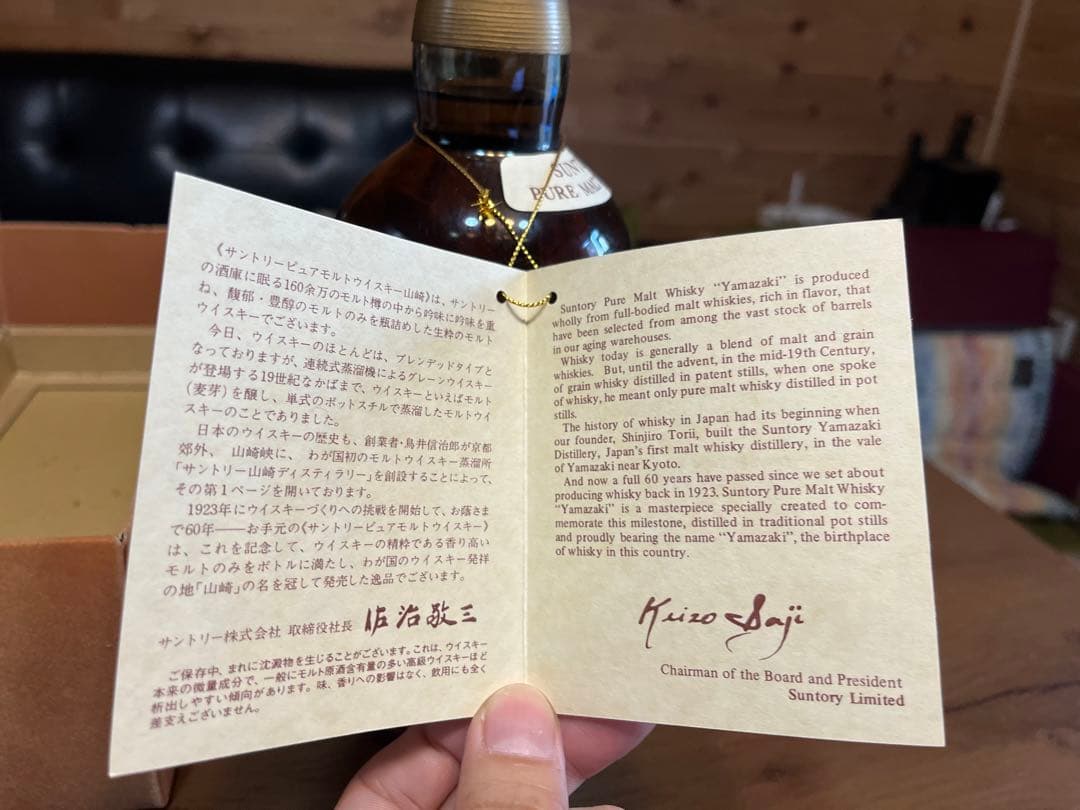 SUNT
PURE MAL
《サントリーピュアモルトウイスキー山崎》は、サントリー
の酒庫に眠る160余万のモルト樽の中から吟味に吟味を重
ね、馥郁・豊醇のモルトのみを瓶詰めした生粋のモルト
ウイスキーでございます。
今日、ウイスキーのほとんどは、ブレンデッドタイプと
なっておりますが、連続式蒸溜機によるグレーンウイスキー
が登場する19世紀なかばまで、ウイスキーといえばモルト
(麦芽)を醸し、単式のポットスチルで蒸溜したモルトウイ
スキーのことでありました。
日本のウイスキーの歴史も、創業者・鳥井信治郎が京都
郊外、山崎峡に、わが国初のモルトウイスキー蒸溜所
「サントリー山崎ディスティラリー」を創設することによって、
その第1ページを開いております。
1923年にウイスキーづくりへの挑戦を開始して、お蔭さま
で60年——お手元の《サントリーピュアモルトウイスキー》
は、これを記念して、ウイスキーの精粋である香り高い
モルトのみをボトルに満たし、わが国のウイスキー発祥
の地「山崎」の名を冠して発売した逸品でございます。
サントリー株式会社 取締役社長 佐治敬三
ご保存中、まれに沈澱物を生じることがございます。これは、ウイスキー
本来の微量成分で、一般にモルト原酒含有量の多い高級ウイスキーほど
析出しやすい傾向があります。味、香りへの影響はなく、飲用にも全く
差支えございません。
Suntory Pure Malt Whisky “Yamazaki” is produced
wholly from full-bodied malt whiskies, rich in flavor, that
have been selected from among the vast stock of barrels
in our aging warehouses.
Whisky today is generally a blend of malt and grain
whiskies. But, until the advent, in the mid-19th Century,
of grain whisky distilled in patent stills, when one spoke
of whisky, he meant only pure malt whisky distilled in pot
stills.
The history of whisky in Japan had its beginning when
our founder, Shinjiro Torii, built the Suntory Yamazaki
Distillery, Japan's first malt whisky distillery, in the vale
of Yamazaki near Kyoto.
And now a full 60 years have passed since we set about
producing whisky back in 1923. Suntory Pure Malt Whisky
“Yamazaki” is a masterpiece specially created to com-
memorate this milestone, distilled in traditional pot stills
and proudly bearing the name “Yamazaki”, the birthplace
of whisky in this country.
Keizo Saji
Chairman of the Board and President
Suntory Limited